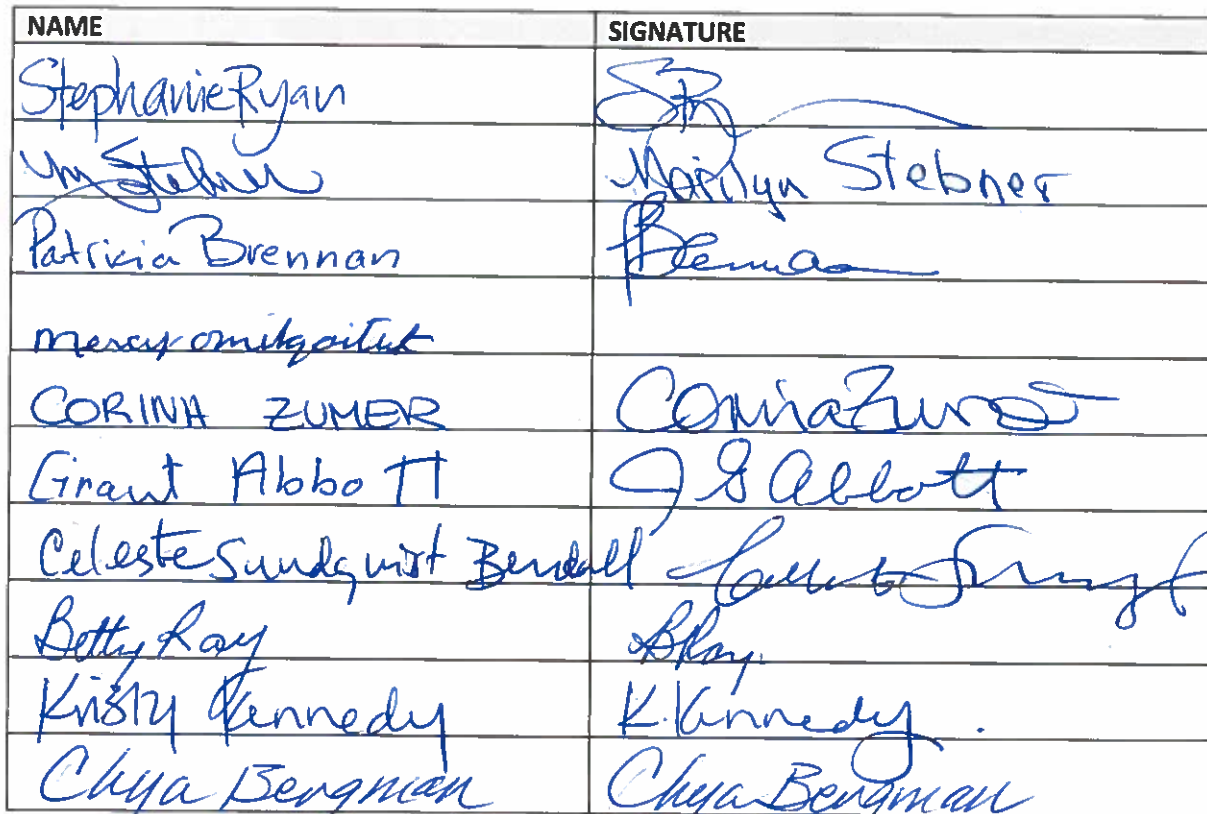 NAME SIGNATURE
Stephanie Ryan SR
M Stebner Marilyn Stebner
Patricia Brennan PBrennan
CORINA ZUMER Corina Zumer
Grant Abbott J G Abbott
Celeste Sundquist Bendall
Betty Ray BRay.
Kristy Kennedy K. Kennedy.
Chya Bergman Chya Bergman